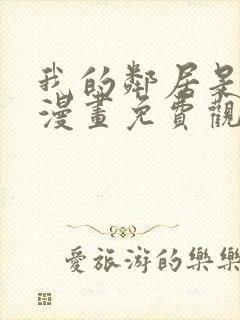 我的鄰居是
漫畫免費觀
愛旅游的樂樂